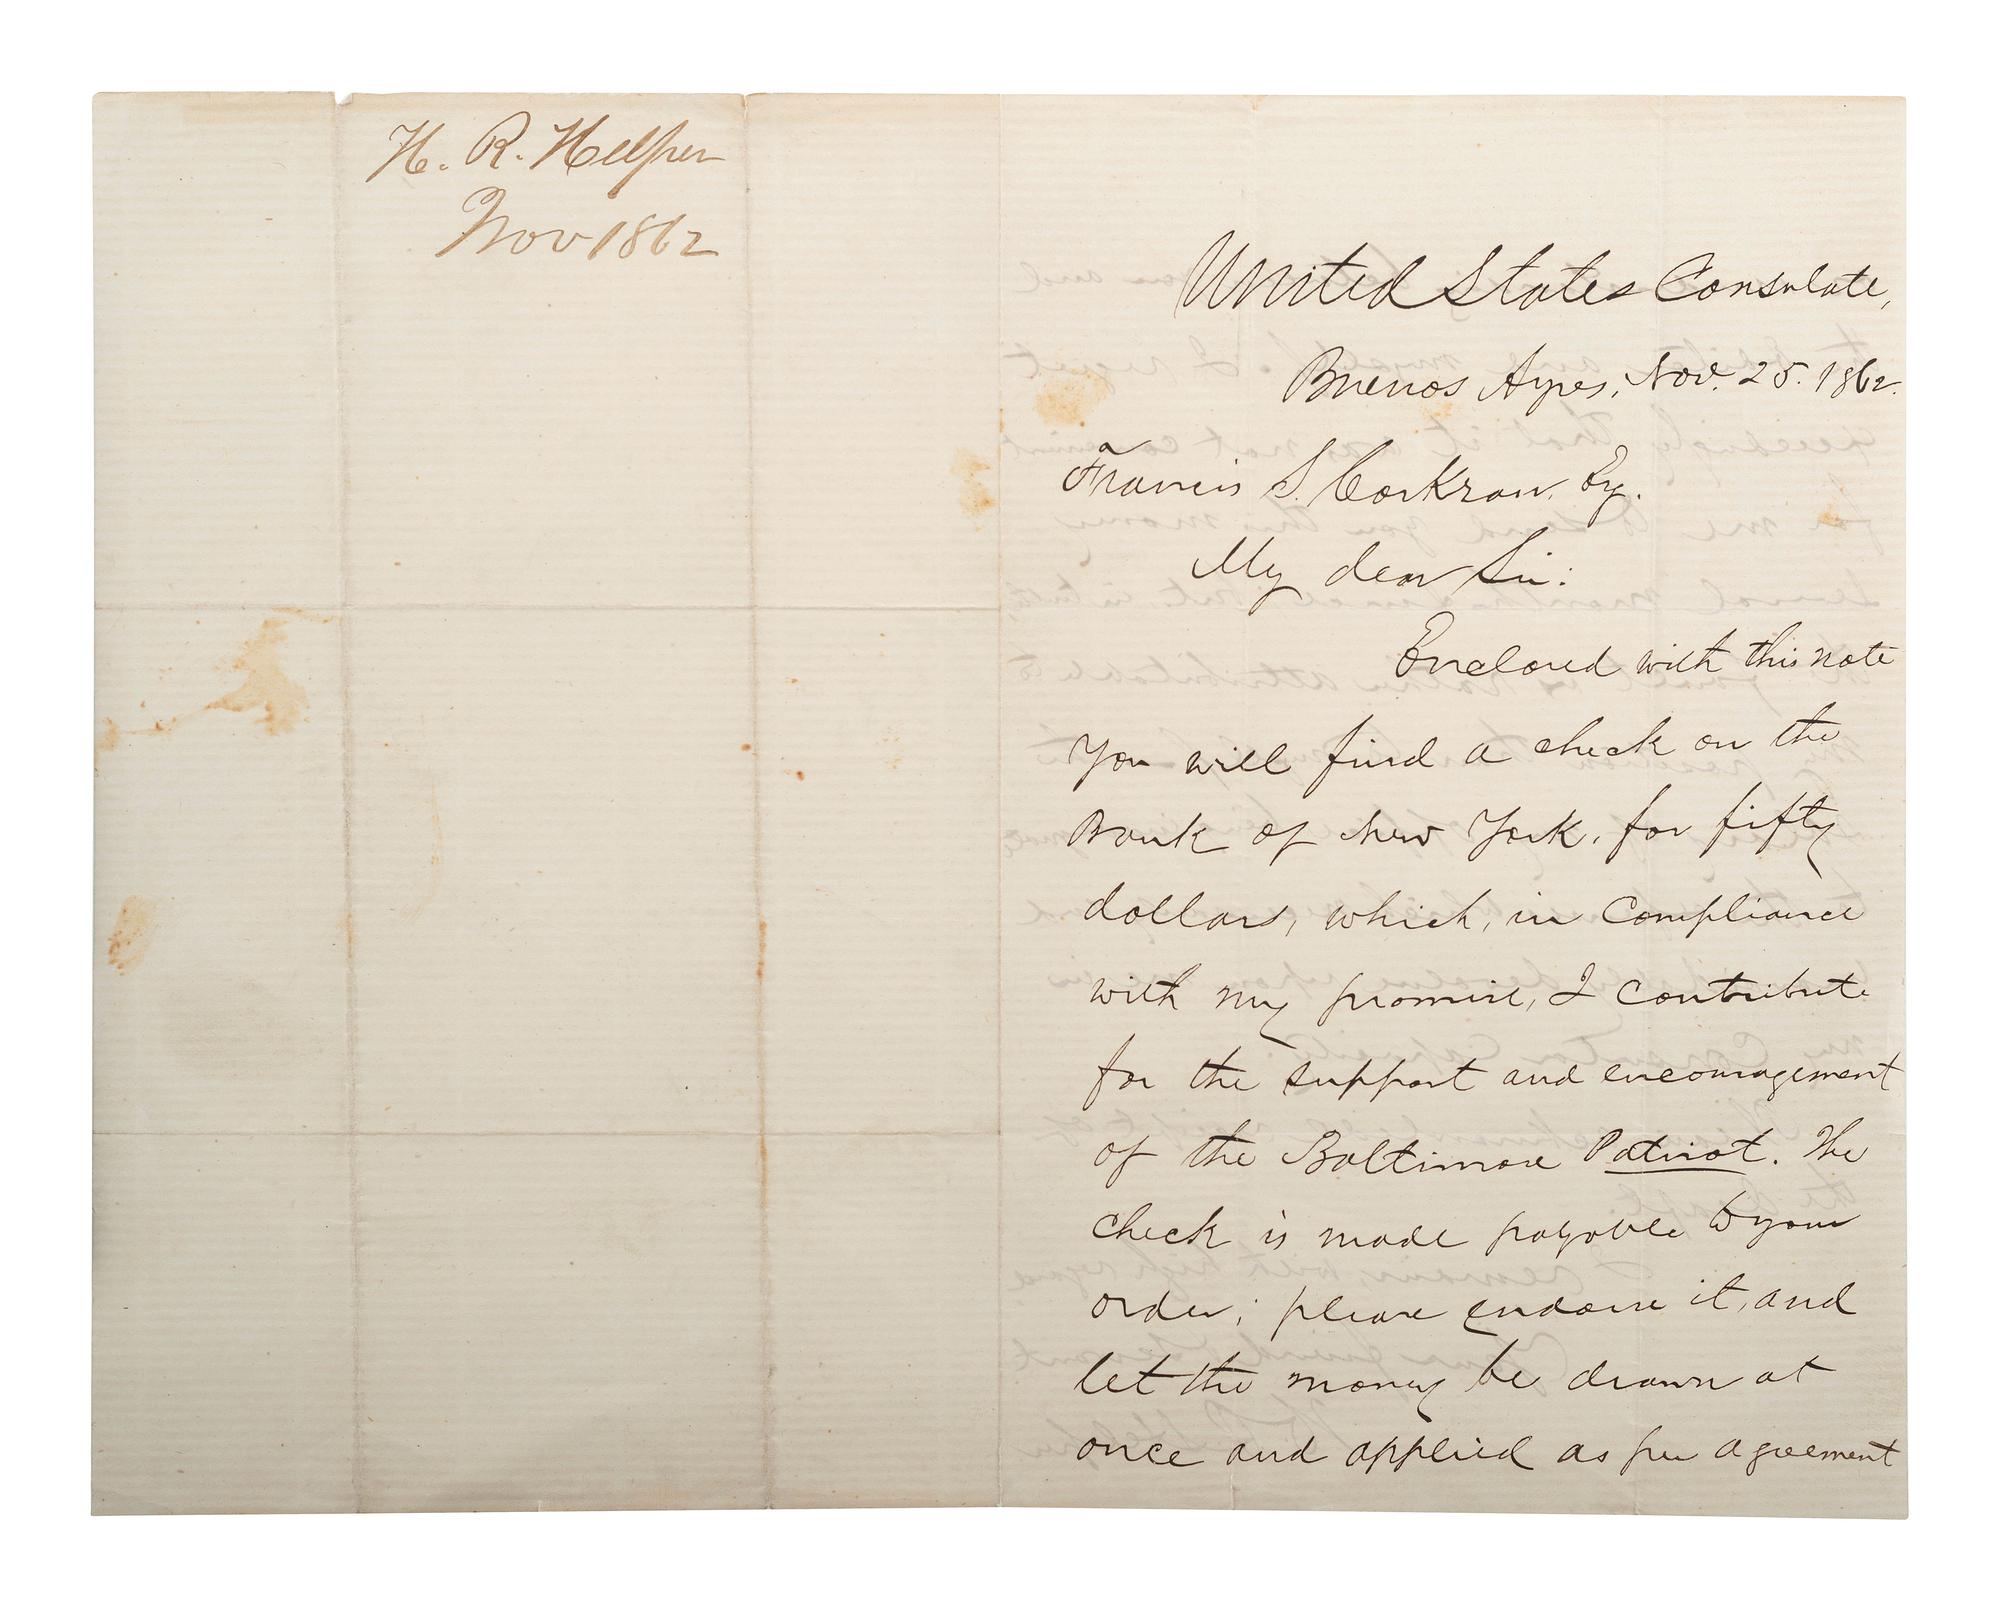 H. R. Helper
Nov 1862
United States Consulate,
Buenos Ayres, Nov. 25. 1862.
Francis S. Corkran, Esq.
My dear Sir:
Enclosed with this note
you will find a check on the
Bank of New York, for fifty
dollars, which, in compliance
with my promise, I contribute
for the support and encouragement
of the Baltimore Patriot. The
check is made payable to your
order; please endorse it, and
let the money be drawn at
once and applied as per agreement